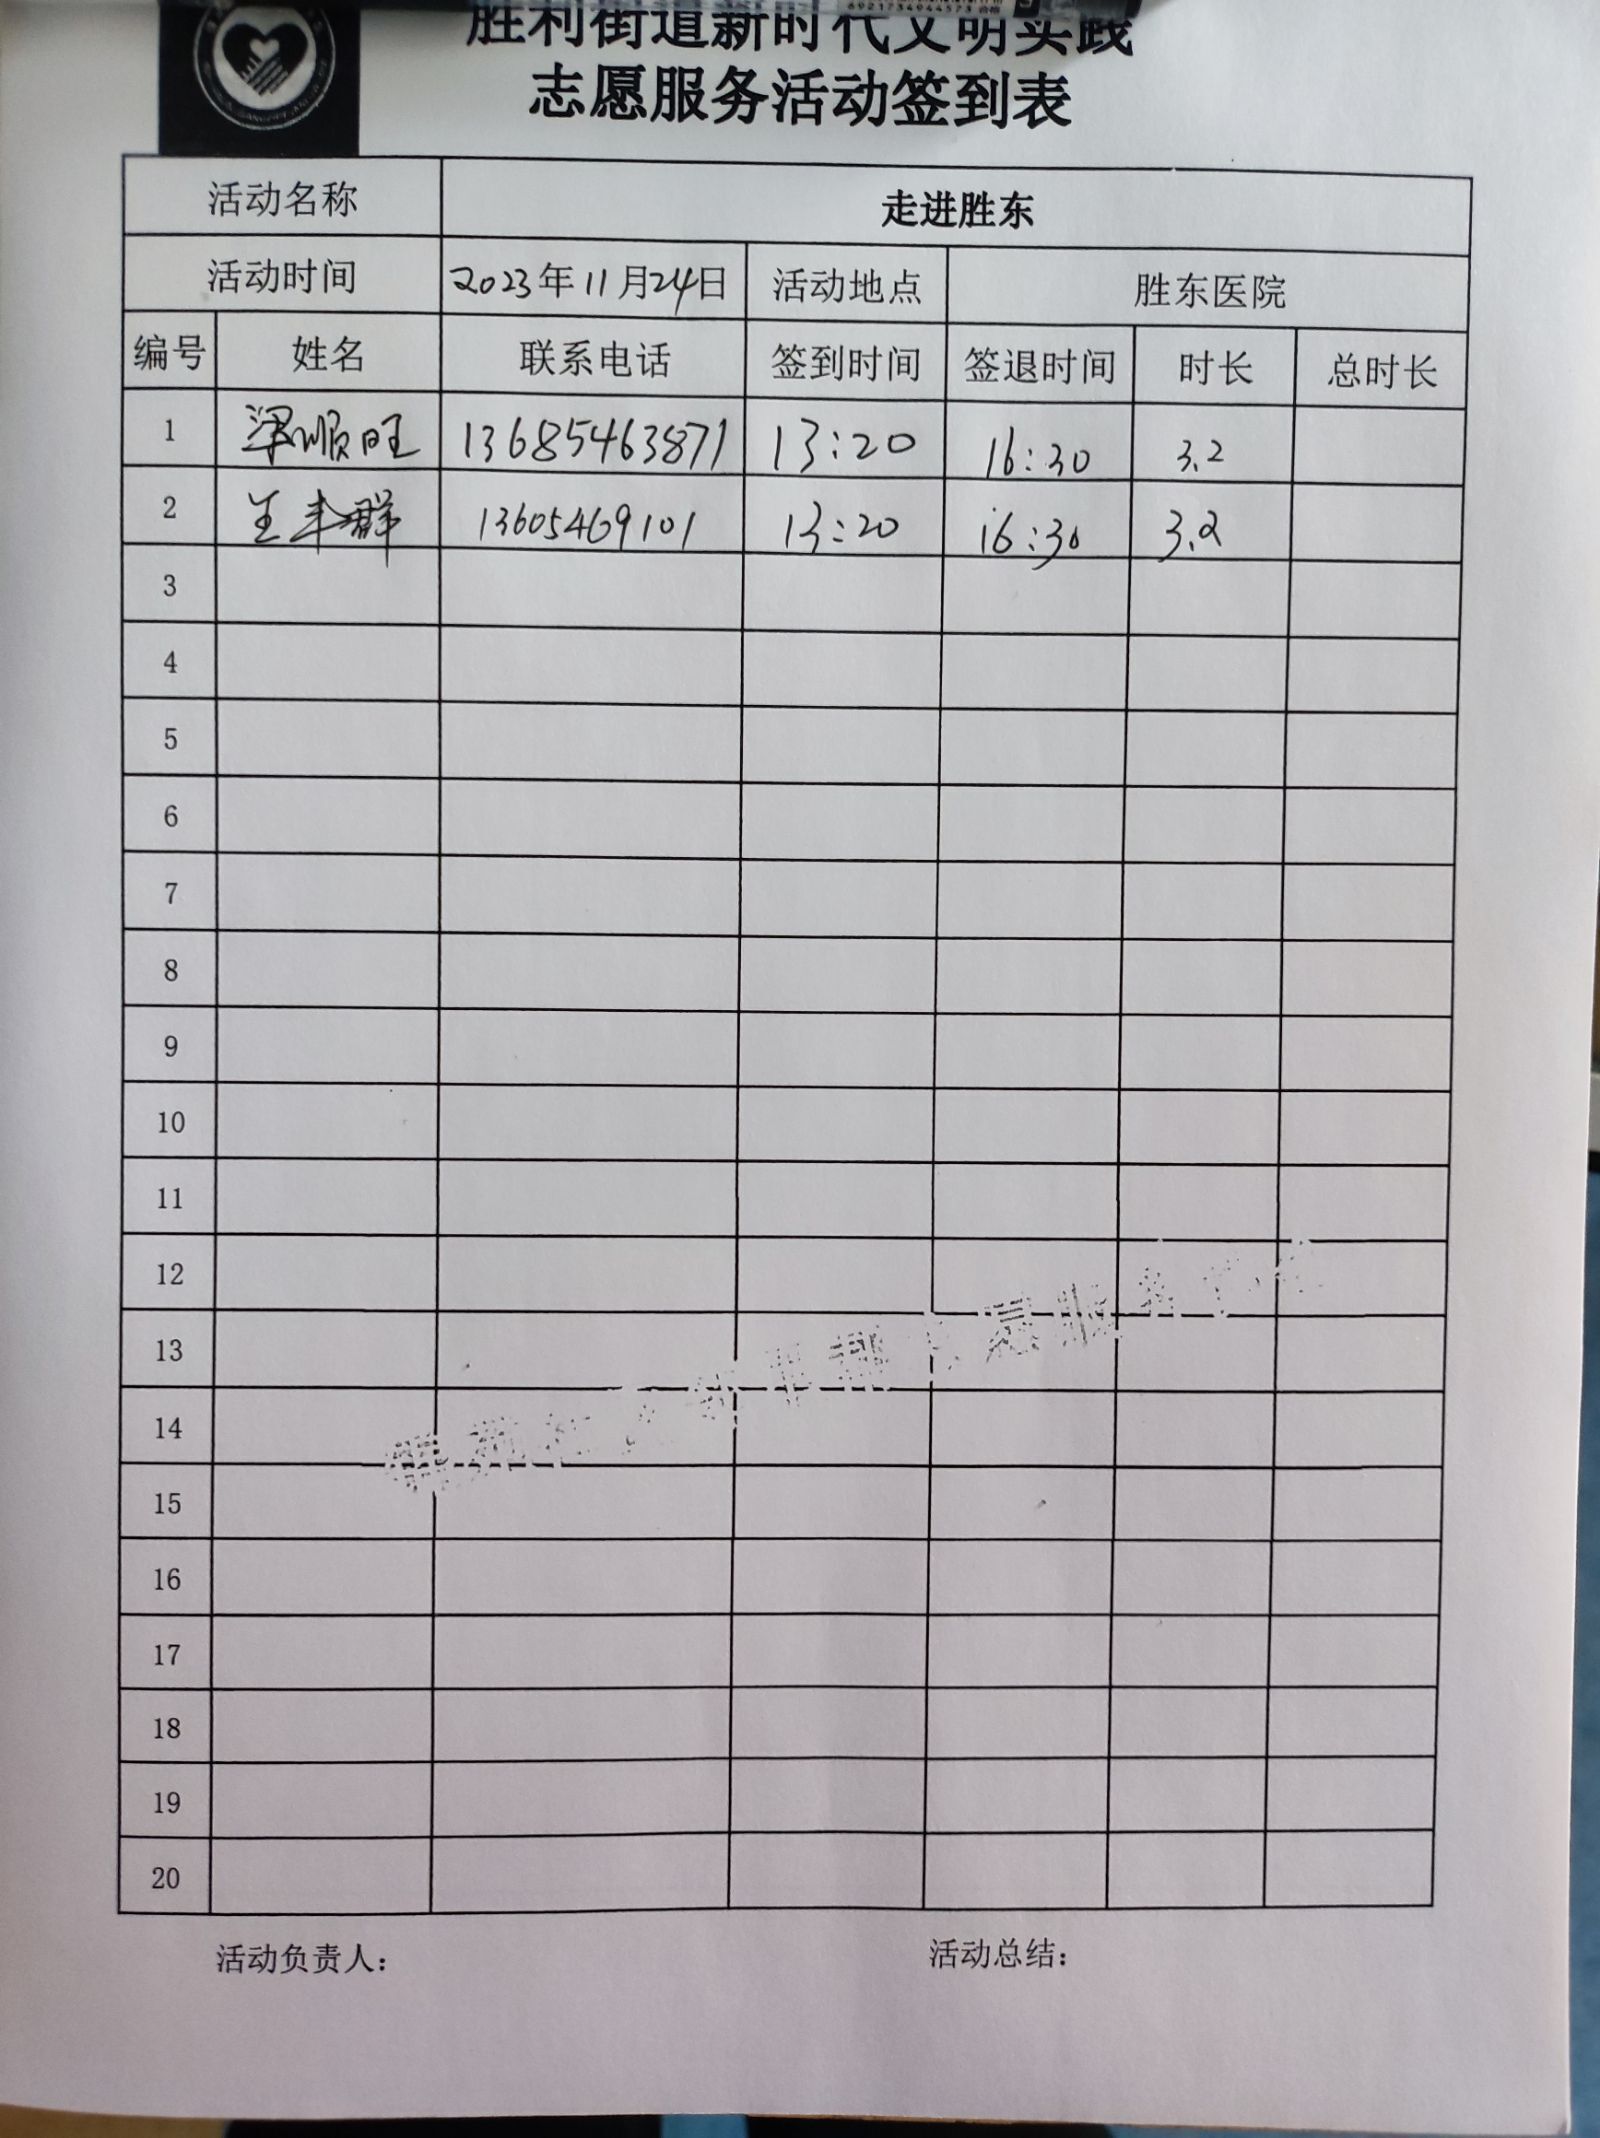 6921734944573 合格
胜利街道新时代文明实践
志愿服务活动签到表
活动名称 走进胜东
活动时间 2023年11月24日 活动地点 胜东医院
编号 姓名 联系电话 签到时间 签退时间 时长 总时长
1 梁顺旺 13685463871 13:20 16:30 3.2
2 王丰群 13605469101 13:20 16:30 3.2
3
4
5
6
7
8
9
10
11
12
13
14
15
16
17
18
19
20
活动负责人: 活动总结: